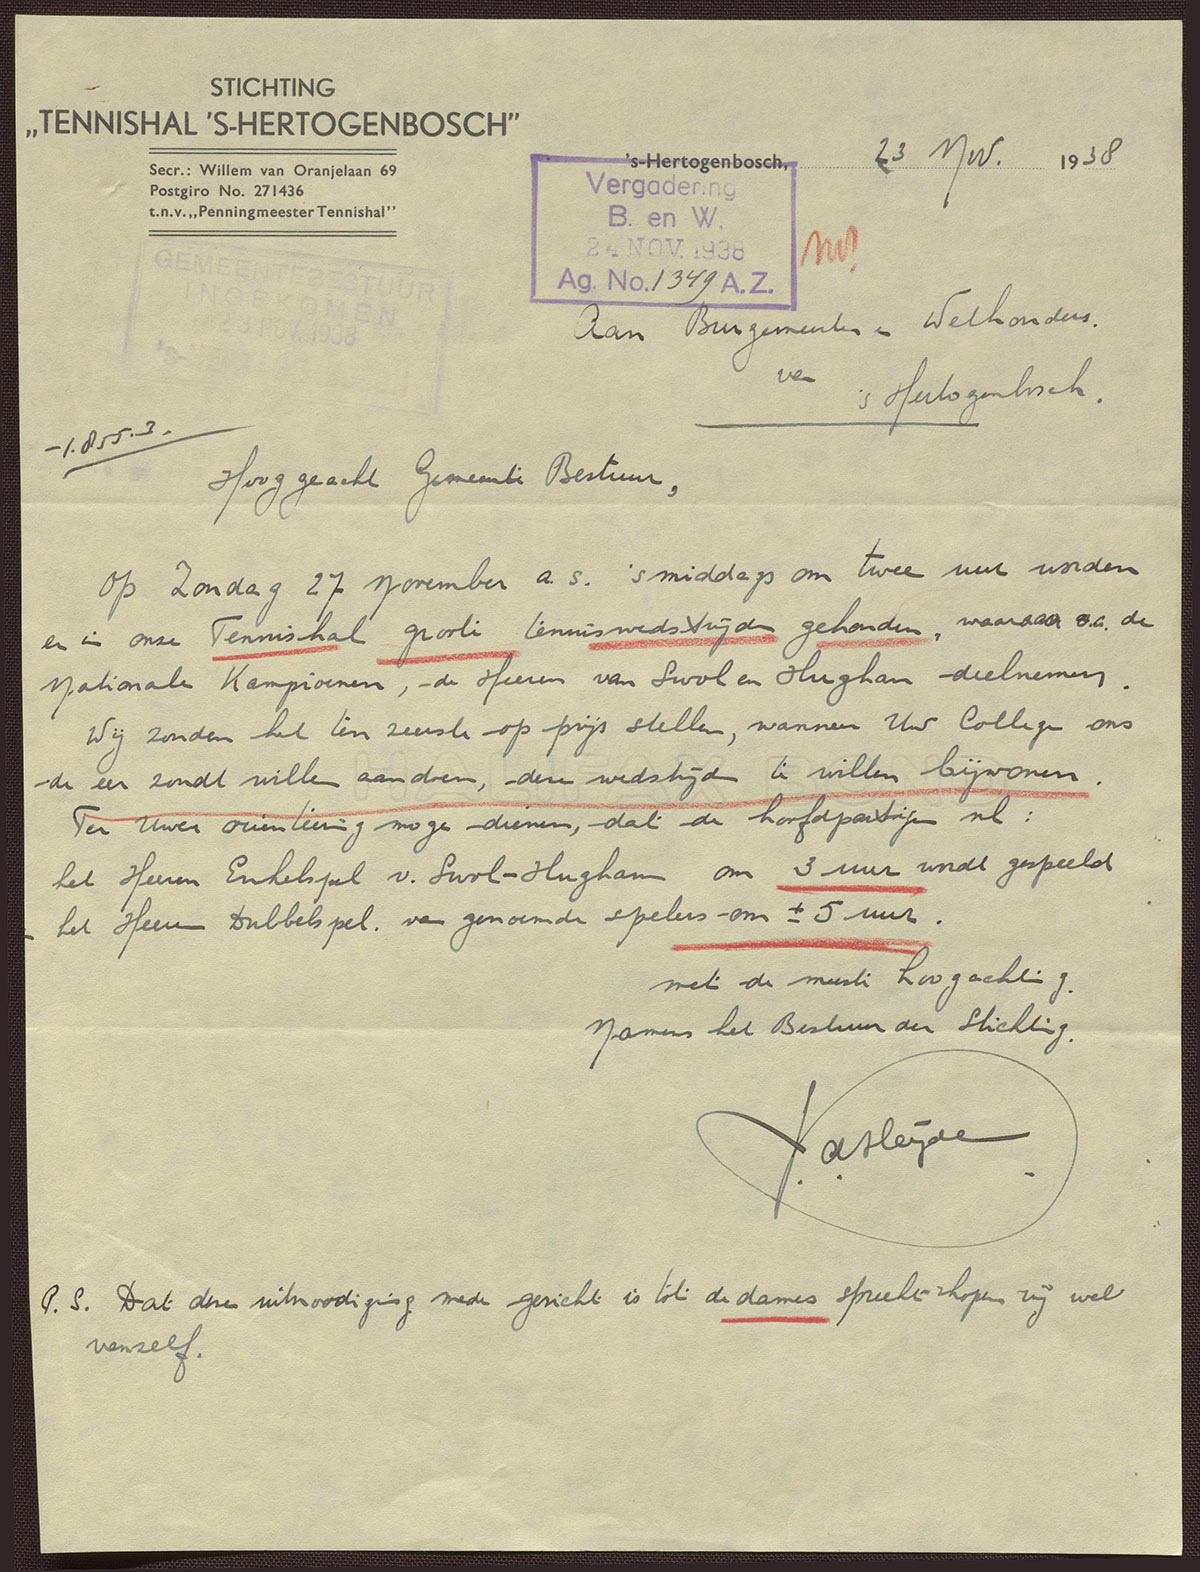 STICHTING
„TENNISHAL 'S-HERTOGENBOSCH”
Secr.: Willem van Oranjelaan 69
Postgiro No. 271436
t.n.v. „Penningmeester Tennishal”
's-Hertogenbosch, 23 Nov. 1938
Vergadering
B. en W.
24 NOV. 1938
Ag. No. 1349 A.Z.
GEMEENTEBESTUUR
INGEKOMEN
23 NOV. 1938
's-
Aan Burgemeester en Wethouders.
van 's Hertogenbosch.
-1.855.3.
Hooggeacht Gemeente Bestuur,
Op Zondag 27 November a.s. 's middags om twee uur worden
er in onze Tennishal groote tenniswedstrijden gehouden, waaraan o.a. de
Nationale Kampioenen, de Heeren van Swol en Hughan deelnemen.
Wij zouden het ten zeerste op prijs stellen, wanneer Uw College ons
de eer zoudt willen aandoen, deze wedstrijden te willen bijwonen.
Ter Uwer orienteering moge dienen, dat de hoofdpartijen nl:
het Heeren Enkelspel v. Swol-Hughan om 3 uur wordt gespeeld
het Heeren Dubbelspel. van genoemde spelers om ± 5 uur.
met de meeste hoogachting.
Namens het Bestuur der Stichting.
P.S. Dat deze uitnoodiging mede gericht is tot de dames spreekt hopen wij wel
vanzelf.